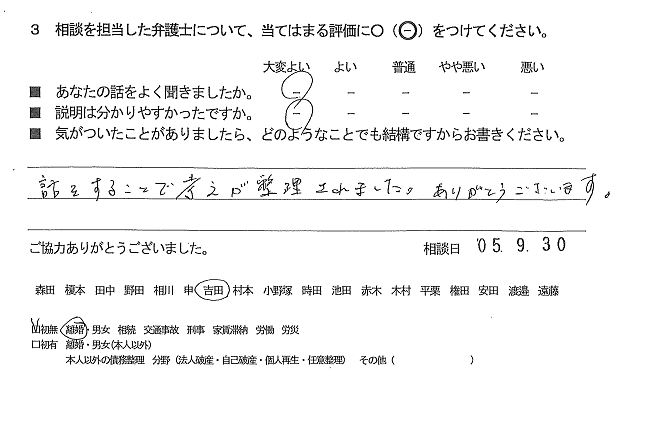 3 相談を担当した弁護士について、当てはまる評価に○（⊖）をつけてください。
大変よい よい 普通 やや悪い 悪い
■ あなたの話をよく聞きましたか。 － － － － －
■ 説明は分かりやすかったですか。 － － － － －
■ 気がついたことがありましたら、どのようなことでも結構ですからお書きください。
話をすることで考えが整理されました。ありがとうございます。
ご協力ありがとうございました。 相談日 '05. 9. 30
森田 榎本 田中 野田 相川 申 吉田 村本 小野塚 時田 池田 赤木 木村 平栗 権田 安田 渡邉 遠藤
☑初無 離婚・男女 相続 交通事故 刑事 家賃滞納 労働 労災
□初有 離婚・男女(本人以外)
本人以外の債務整理 分野（法人破産・自己破産・個人再生・任意整理） その他（ ）